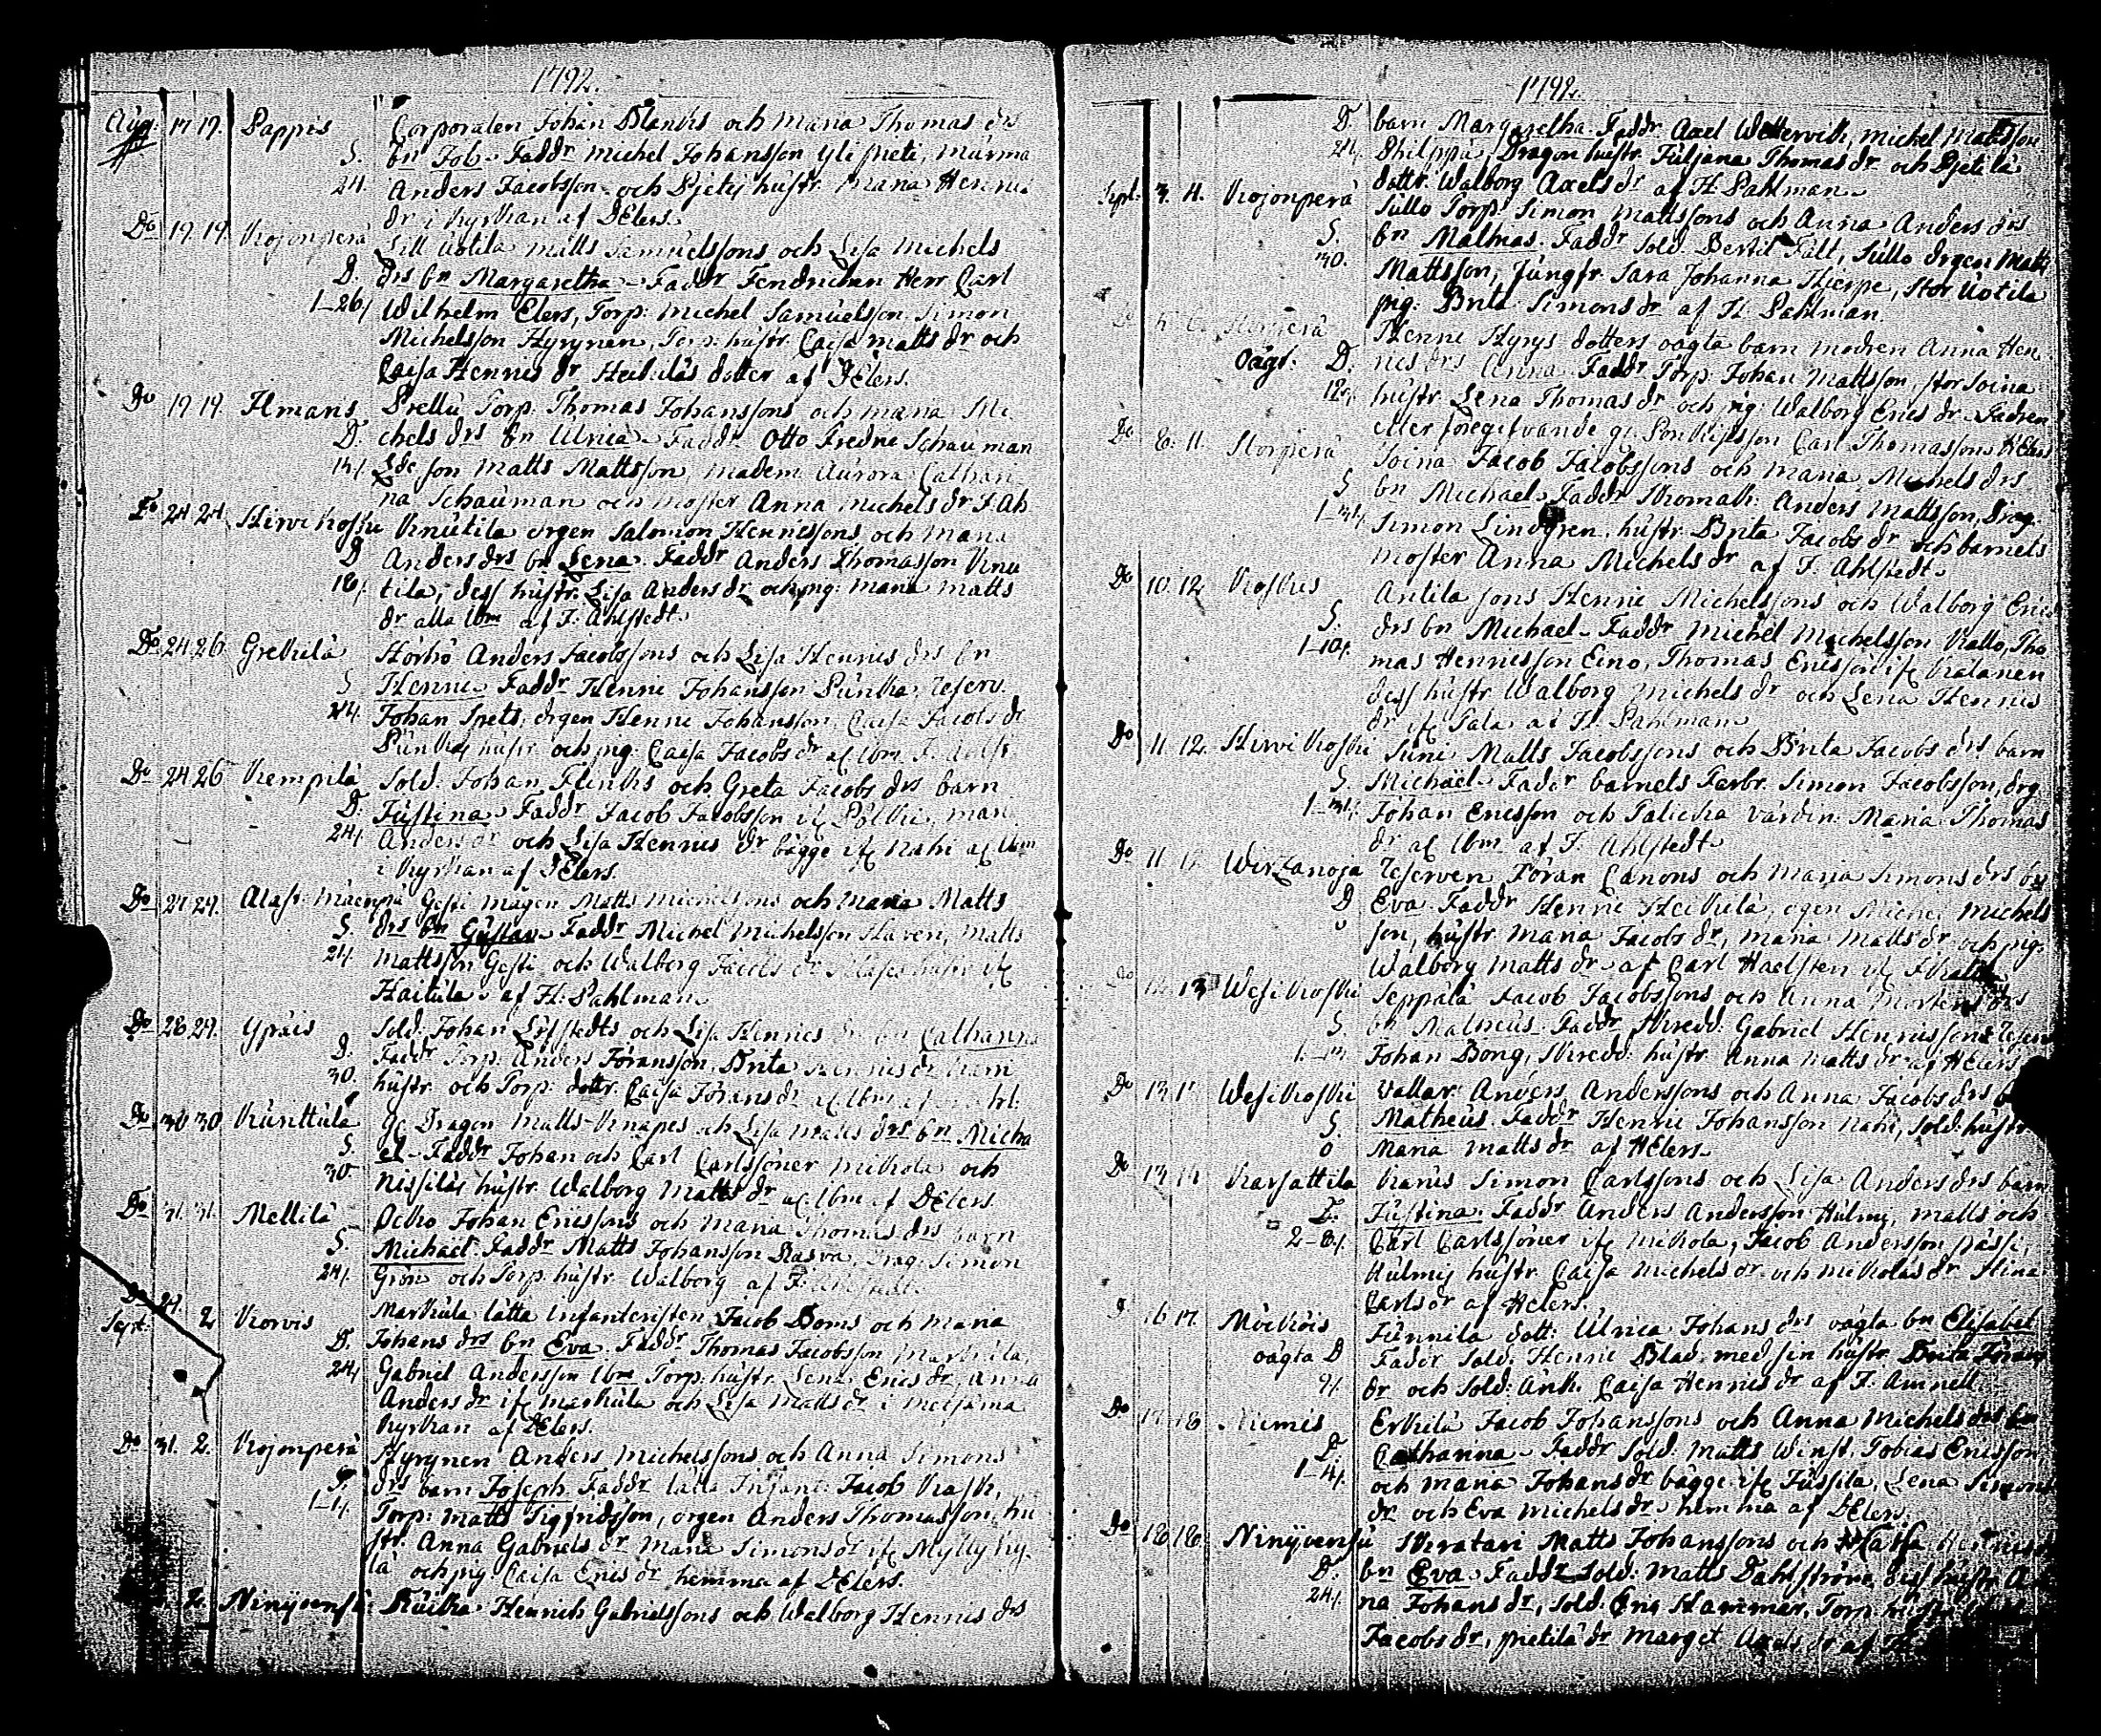 1792.
Aug. 17 19. Pappis Corporalen Johan Blanks och Maria Thomas drs
S. bn Job. Faddr Michel Johansson Ylipieti, murma
24. Anders Jacobsson och Pjetis hustr. Maria Hennis
dr i kyrkan af DElers.
Do 19 19 Kojonperä Lill Uotila Matts Samuelssons och Lisa Michels
D. drs bn Margaretha. Faddr Fendrichen Herr Carl
1–26/ Wilhelm Elers, Torp: Michel Samuelsson Simon
Michelsson Hyrynen, Torp: hustr. Caisa Matts dr och
Caisa Hennis dr Heikiläs dotter af DElers.
Do 19 19. Ilmans Prellu Torp: Thomas Johanssons och Maria Mi
D. chels drs bn Ulrica. Faddr Otto Fredric Schauman
Matts Mattsson, madem. Aurora Cathari
na Schauman och moster Anna Michels dr F. Ah
Do 24 24. Hirvikoski Knutila drgen Salomon Hennissons och Maria
D Anders drs bn Lena. Faddr Anders Thomasson Knu
18/. tila, dess hustr. Lisa Anders dr och pig: Maria Matts
dr alla ibm af F. Ahlstedt.
Do 24 26 Grekilä Anders Jacobssons och Lisa Hennis drs bn
S Henric. Faddr Henric Johansson Punka, Reserv.
Johan Spets, drgen Henric Johansson, Caisa Jacobs dr
Punkas hustr. och pig: Caisa Jacobs dr af ibm F. Ahlst.
Do 24 26 Kempilä Sold. Johan Flinks och Greta Jacobs drs barn
D. Justina. Faddr Jacob Jacobsson if Pölkki, Mari
24/. Anders dr och Lisa Hennis dr bägge if Nahi af ibm
i kyrkan af DElers.
Do 27 29. Alast: Gesti mågen Matts Michelssons och Maria Matts
S. drs bn Gustav. Faddr Michel Michelsson Haven, Matts
24. Mattsson Gesti och Walborg Jacobs dr hustr if
Haitula. af H: Pahlman.
Do 28 29. Ypäis Sold: Johan Löfstedts och Lisa Hennis drs bn Catharina
D. Faddr Torp: Anders Göransson, Brita Hennis dr
30. hustr. och Torp: dottr. Caisa Görans dr af ibm
Do 30 30 Kurittula Gc Dragon Matts Knapes och Lisa Matts drs bn Micha
S. el. Faddr Johan och Carl Carlssöner Mikkola och
30 Nissiläs hustr. Walborg Matts dr af ibm af DElers.
Do 31. 31. Mellilä Johan Ericssons och Maria Thomas drs barn
S. Michael. Faddr Matts Johansson Rasva, Drag: Simon
24/. Grön och Torp: hustr Walborg af F.
Do 29
Sept. 2 Korvis Markula lätta Infanteristen Jacob Boms och Maria
D. Johans drs bn Eva. Faddr Thomas Jacobsson Markula,
24/ Gabriel Andersson ibm Torp: hustr. Lena Erics dr, Anna
Anders dr if Markula och Lisa Matts dr i
kyrkan af DElers.
Do 31. 2. Kojonperä Hyrynen Anders Michelssons och Anna Simons
S. drs barn Joseph. Faddr lätta Infant: Jacob Rask,
1–1/. Torp: Matts Sigfridsson, drgen Anders Thomasson, hu
str. Anna Gabriels dr Maria Simons dr if Myllyky
lä och pig Caisa Erics dr hemma af DElers.
2. Niniyvensu Räikä Henrich Gabrielssons och Walborg Hennis drs
1792.
D. barn Margaretha. Faddr Axel Wetterwik, Michel Mattsson
24/. Philppu, Dragon hustr. Juljana Thomas dr och Pjetilä
dottr. Walborg Axels dr af H. Pahlman.
Sept. 3. 4. Kojonperä Sullo Torp: Simon Mattssons och Anna Anders drs
S. bn Mathias. Faddr Sold. Bertil Fält, Sullo drgen Matts
30. Mattsson, Jungfr. Sara Johanna Hierpe, Stor Uotila
pig: Brita Simons dr af H. Pahlman.
Henric Hyrys dotters oägta barn modren Anna Hen
Oägt: D. nes drs Anna. Faddr Torp. Johan Mattsson, stor Soina
18/. hustr Lena Thomas dr och pig: Walborg Erics dr. Fadren
efter föregifvande gc Carl Thomassons DElers
Do 8. 11. Storperä Soina Jacob Jacobssons och Maria Michels drs
S bn Michael. Faddr Anders Mattsson, Drag:
Simon Lindgren, hustr. Brita Jacobs dr och barnets
moster Anna Michels dr af F. Ahlstedt.
Do 10. 12. Koskis Antila sons Henric Michelssons och Walborg Erics
S. drs bn Michael. Faddr Michel Michelsson Kallo, Tho
1–10/. mas Hennisson Eino, Thomas Ericsson if Katanen
dess hustr Walborg Michels dr och Lena Hennis
dr if Tala af H. Pahlman
Do 11. 12. Hirvikoski Suni Matts Jacobssons och Brita Jacobs drs barn
S. Michael. Faddr barnets Farbr. Simon Jacobsson, drg
Johan Ericsson och Talicka värdin: Maria Thomas
dr af ibm af F. Ahlstedt.
Do 11. 12 Wirzanoja Reserven Göran Canons och Maria Simons drs bn
D Eva. Faddr Henric Heikilä, drgen Michel Michels
0 son, hustr Maria Jacobs dr, Maria Matts dr och pig:
Walborg Matts dr af Carl Haelsten
13 Wesikoski Seppälä Jacob Jacobssons och Anna Mårtens drs
S. bn Matheus. Faddr Skredd. Gabriel Hennissons Reserv
Johan Bong, Skredd: hustr. Anna Matts dr af HElers
Do 13 Wesikoski Vallari Anders Anderssons och Anna Jacobs drs
S. Matheus. Faddr Henric Johansson Nahi, Sold: hustr
0 Maria Matts dr af HElers.
Do 13 Karsattila Karus Simon Carlssons och Lisa Anders drs barn
Justina. Faddr Anders Andersson Hulmi, Matts och
2–8/. Carl Carlssöner if Mikola, Jacob Andersson Pässi,
Hulmis hustr. Caisa Michels dr och Mikolas dr Stina
Carls dr af HElers.
16 17. Junnila dott: Ulrica Johans drs oägta bn Elisabet
oägta D Faddr Sold: Henric Blad, med sin hustr. Brita Jörans
9/. dr och Sold: änk. Caisa Hennis dr af F. Amnell.
Do 17 18. Niemis Erkilä Jacob Johanssons och Anna Michels drs bn
D. Catharina. Faddr Sold. Matts Winst. Tobias Ericsson
1–4/. och Maria Johans dr bägge if Jussila, Lena Simons
dr och Eva Michels dr hemma af DElers.
Do 18 18. Niniyvensu Skratari Matts Johanssons och Caisa Hennis
D. bn Eva. Faddr Sold: Matts Dahlström, dess hustr An
24/. na Johans dr, Sold. Eric Hammar, Torp hustr
Jacobs dr, Pietilä dr Marget Axels dr af